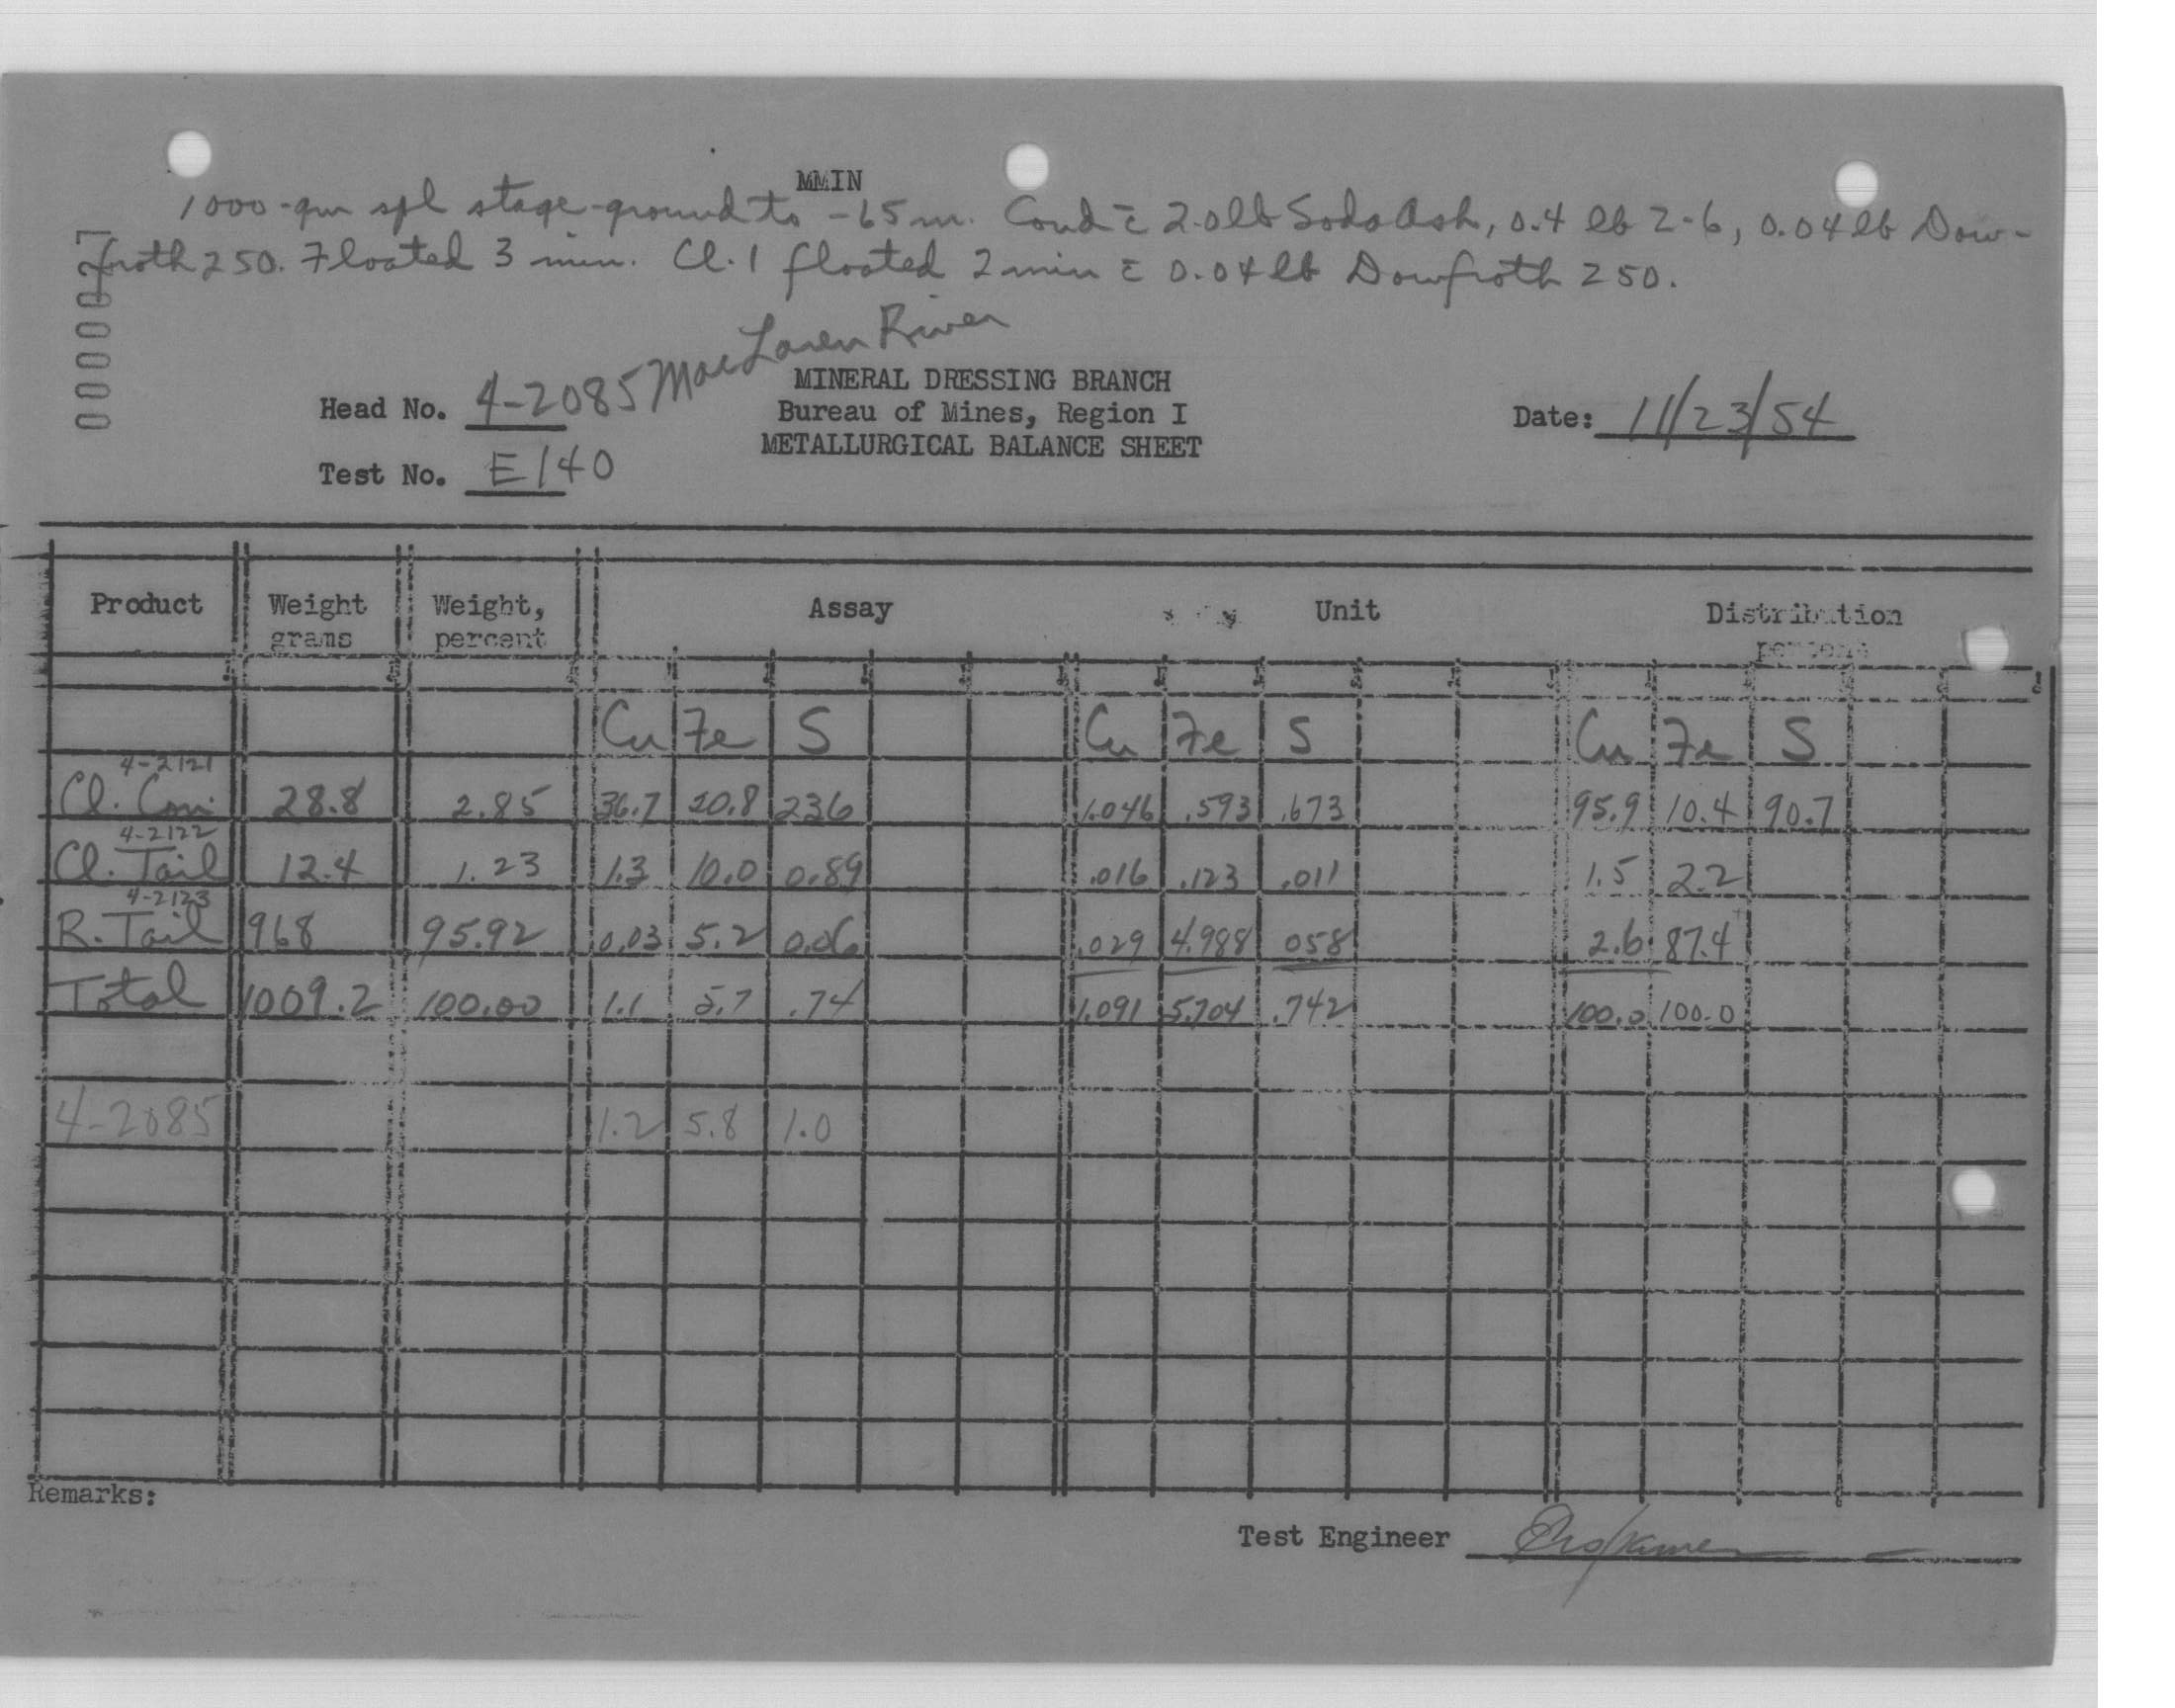 MMIN
1000-gm spl stage-ground to -65m. Cond c̄ 2.0lb Soda Ash, 0.4 lb Z-6, 0.04 lb Dow-
froth 250. Floated 3 min. Cl.1 floated 2 min c̄ 0.04 lb Dowfroth 250.
MacLaren River
MINERAL DRESSING BRANCH
Head No. 4-2085 Bureau of Mines, Region I Date: 11/23/54
METALLURGICAL BALANCE SHEET
Test No. E140
Product Weight grams Weight, percent Assay Unit Distribution percent
Cu Fe S Cu Fe S Cu Fe S
4-2121
Cl. Con. 28.8 2.85 36.7 20.8 236 1.046 .593 .673 95.9 10.4 90.7
4-2122
Cl. Tail 12.4 1.23 1.3 10.0 0.89 .016 .123 .011 1.5 2.2
4-2123
R. Tail 968 95.92 0.03 5.2 0.06 .029 4.988 058 2.6 87.4
Total 1009.2 100.00 1.1 5.7 .74 1.091 5.704 .742 100.0 100.0
4-2085 1.2 5.8 1.0
Remarks:
Test Engineer